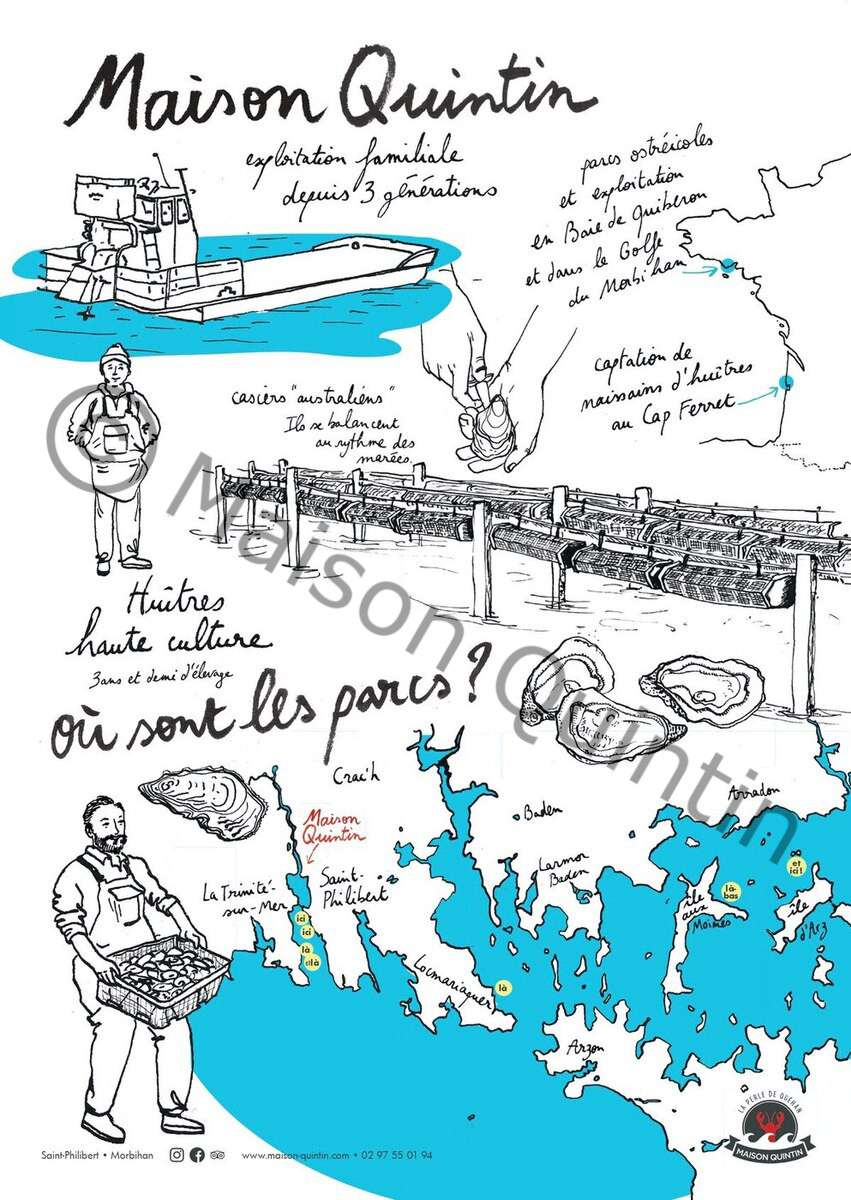 Maison Quintin
exploitation familiale
depuis 3 générations
parcs ostréicoles
et exploitation
en Baie de Quiberon
et dans le Golfe
du Morbihan
captation de
naissains d'huîtres
au Cap Ferret
casiers "australiens"
Ils se balancent
au rythme des
marées.
Huîtres
haute culture
3 ans et demi d'élevage
où sont les parcs ?
Crac'h
Maison
Quintin
La Trinité-
sur-Mer
Saint-
Philibert
ici
ici
là
là
Locmariaquer
là
Baden
Larmor
Baden
Arradon
île
aux
Moines
là-
bas
et
ici !
île
d'Arz
Arzon
LA PERLE DE QUÉHAN
MAISON QUINTIN
Saint-Philibert • Morbihan
www.maison-quintin.com • 02 97 55 01 94
© Maison Quintin